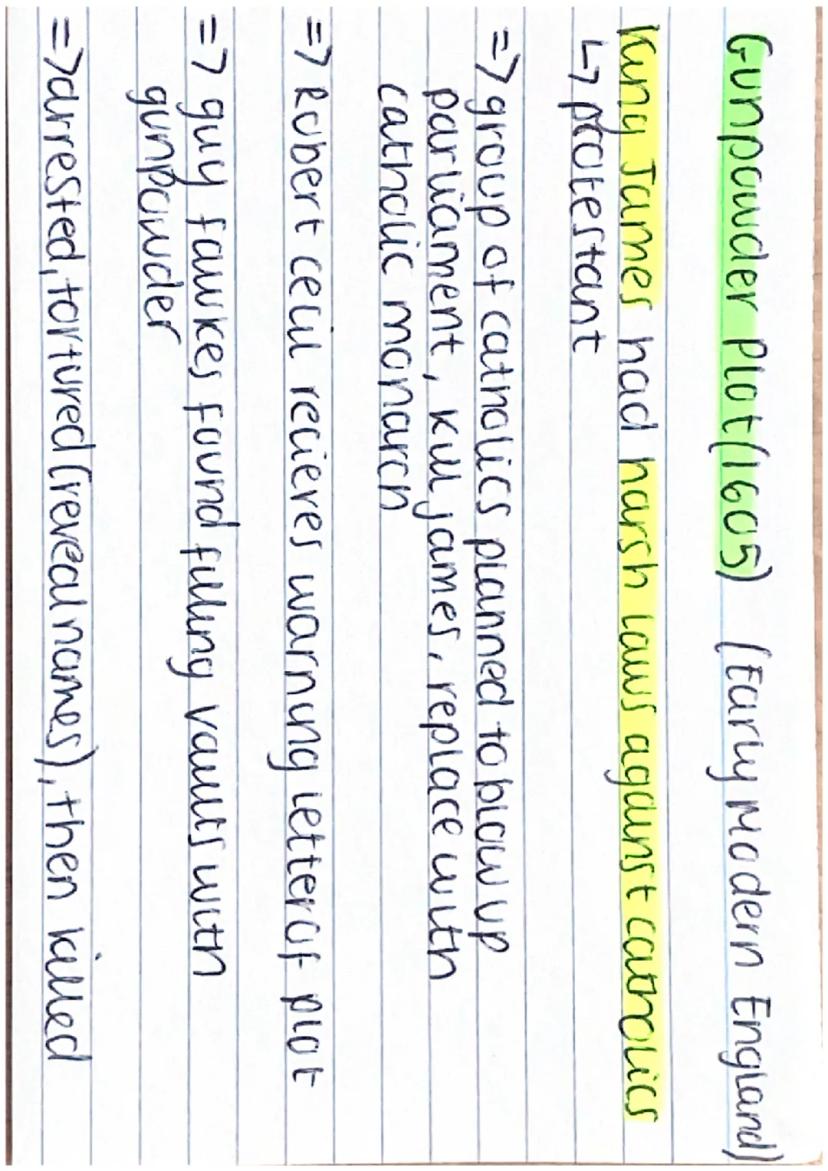 Gunpowder Plot (1605) (Early Modern England)
King James had harsh laws against catholics
↳ protestant
=> group of catholics planned to blow up
parliament, kill james, replace with
catholic monarch
=> Robert cecil recieves warning letter of plot
=> guy fawkes found filling vaults with
gunpowder
=> arrested, tortured (reveal names), then killed